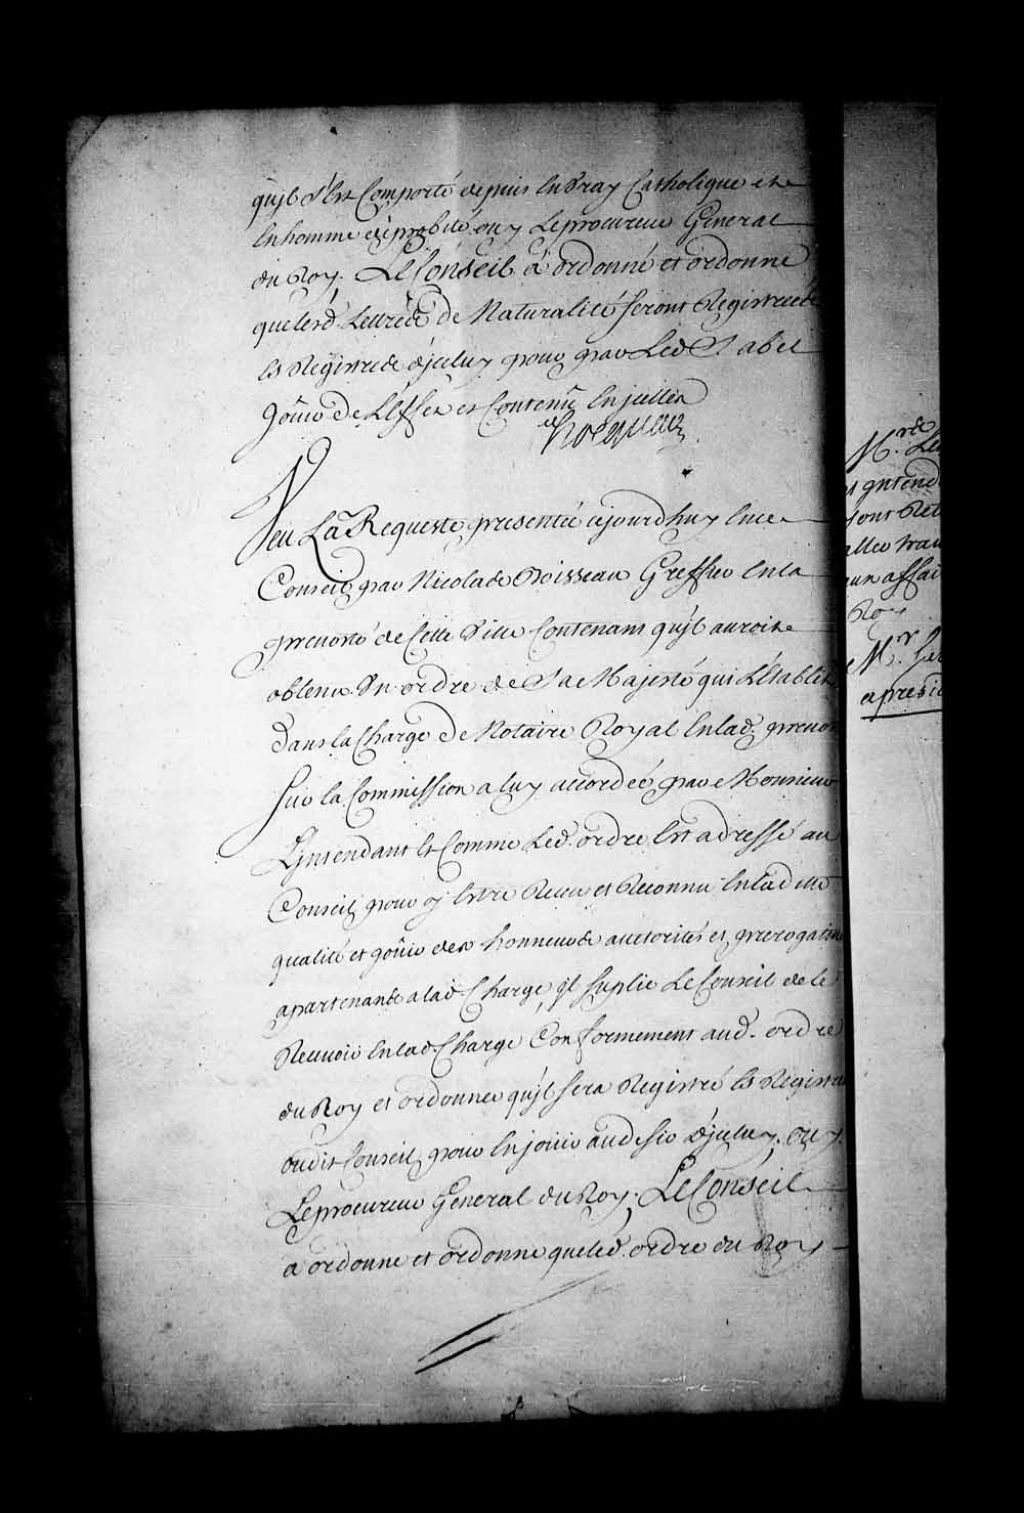 quil s'est Comporté depuis En Vray Catholique et
En homme de probité ouy Le procureur General
du Roy. Le Conseil a ordonné et ordonne
que lesd. Lettres de Naturalité seront Registrées
Es Registres d'jceluy pour par Led. S. abel
Joüir de L'effet et Contenu En jcelles

Veu La Requeste presentée cejourd'huy En ce
Conseil par Nicolas Boisseau Greffier En la
prevosté de Cette Ville Contenant qu'jl auroit
obtenu Vn ordre de Sa Majesté qui L'Establit
dans la Charge de Notaire Royal En lad. prevosté
Sur la Commission a luy accordée par Monsieur
L'jntendant Et Comme Led. ordre Est adressé au
Conseil pour y Estre Receu et Reconnu En ladite
qualité et joüir des honneurs auctorités et prerogatives
apartenants a lad. Charge, jl suplie Le Conseil de le
Recevoir En lad. Charge Conformement aud. ordre
du Roy et ordonner qu'jl sera Registré Es Registres
dudit Conseil pour En joüir au desir d'jceluy, ouy
Le procureur General du Roy; Le Conseil
a ordonné et ordonne que led. ordre du Roy
M.rs
jntend
sont Ret
aller
aux affai
Roy
M.r
apresid